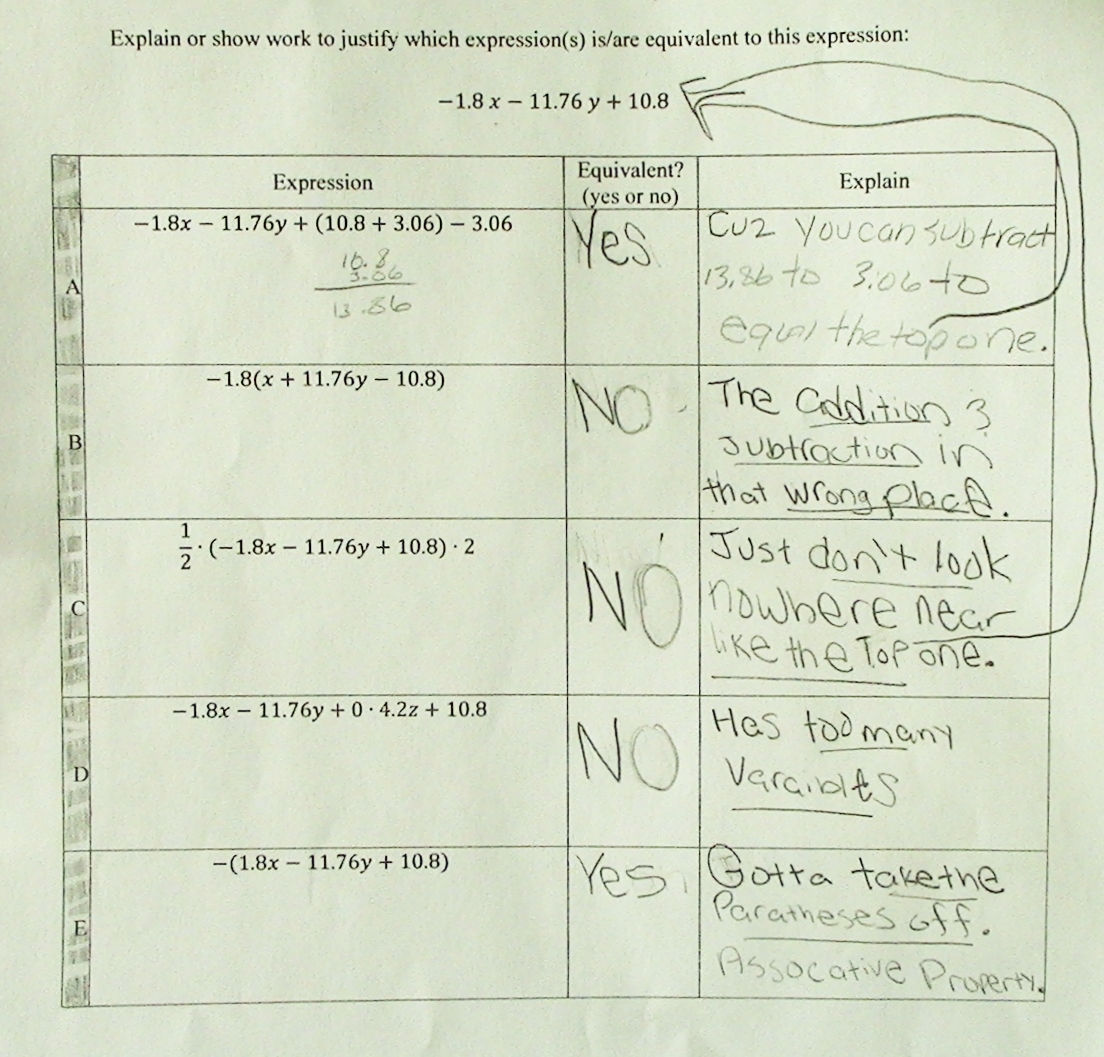 Explain or show work to justify which expression(s) is/are equivalent to this expression:
−1.8 x − 11.76 y + 10.8
Expression
Equivalent?
(yes or no)
Explain
A
−1.8x − 11.76y + (10.8 + 3.06) − 3.06
10.8
3.06
13.86
Yes
Cuz You can subtract
13.86 to 3.06 to
equal the top one.
B
−1.8(x + 11.76y − 10.8)
NO
The addition &
subtraction in
that wrong place.
C
1/2 · (−1.8x − 11.76y + 10.8) · 2
NO
Just don't look
nowhere near
like the Top one.
D
−1.8x − 11.76y + 0 · 4.2z + 10.8
NO
Has too many
Varaibles
E
−(1.8x − 11.76y + 10.8)
Yes
Gotta take the
Paratheses off.
Assocative Property.